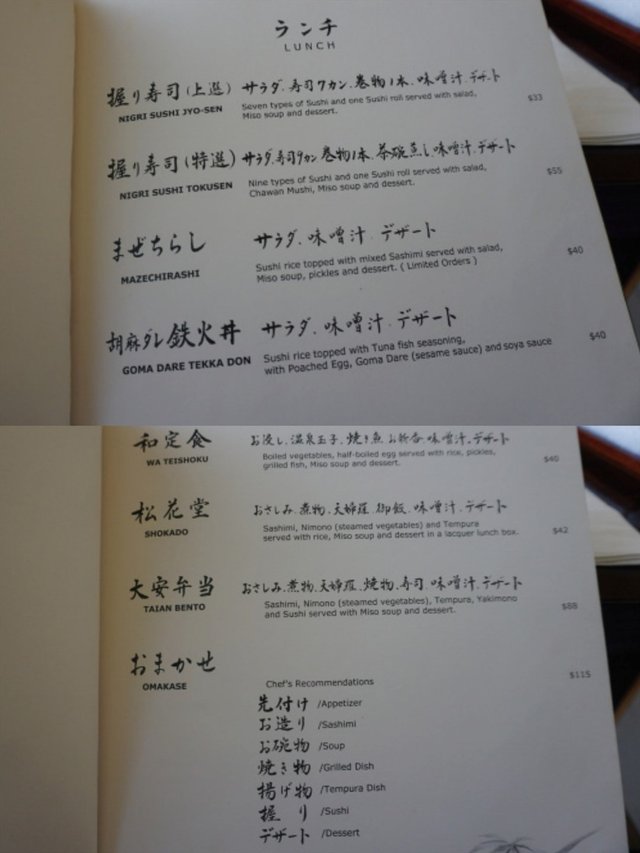 ランチ
LUNCH
握り寿司(上選) サラダ.寿司7カン.巻物1本.味噌汁.デザート
NIGRI SUSHI JYO-SEN Seven types of Sushi and one Sushi roll served with salad, $33
Miso soup and dessert.
握り寿司(特選) サラダ.寿司9カン 巻物1本.茶碗蒸し.味噌汁.デザート
NIGRI SUSHI TOKUSEN Nine types of Sushi and one Sushi roll served with salad, $55
Chawan Mushi, Miso soup and dessert.
まぜちらし サラダ.味噌汁.デザート
MAZECHIRASHI Sushi rice topped with mixed Sashimi served with salad, $40
Miso soup, pickles and dessert. ( Limited Orders )
胡麻ダレ鉄火丼 サラダ.味噌汁.デザート
GOMA DARE TEKKA DON Sushi rice topped with Tuna fish seasoning, $40
with Poached Egg, Goma Dare (sesame sauce) and soya sauce
和定食 お浸し.温泉玉子.焼き魚.お新香.味噌汁.デザート
WA TEISHOKU Boiled vegetables, half-boiled egg served with rice, pickles, $40
grilled fish, Miso soup and dessert.
松花堂 おさしみ.煮物.天婦羅.御飯.味噌汁.デザート
SHOKADO Sashimi, Nimono (steamed vegetables) and Tempura $42
served with rice, Miso soup and dessert in a lacquer lunch box.
大安弁当 おさしみ.煮物.天婦羅.焼物.寿司.味噌汁.デザート
TAIAN BENTO Sashimi, Nimono (steamed vegetables), Tempura, Yakimono $88
and Sushi served with Miso soup and dessert.
おまかせ
OMAKASE Chef's Recommendations $115
先付け /Appetizer
お造り /Sashimi
お碗物 /Soup
焼き物 /Grilled Dish
揚げ物 /Tempura Dish
握り /Sushi
デザート /Dessert